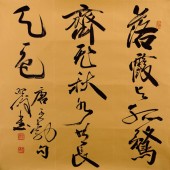 落霞与孤鹜
齐飞秋水共长
天一色
唐王勃句